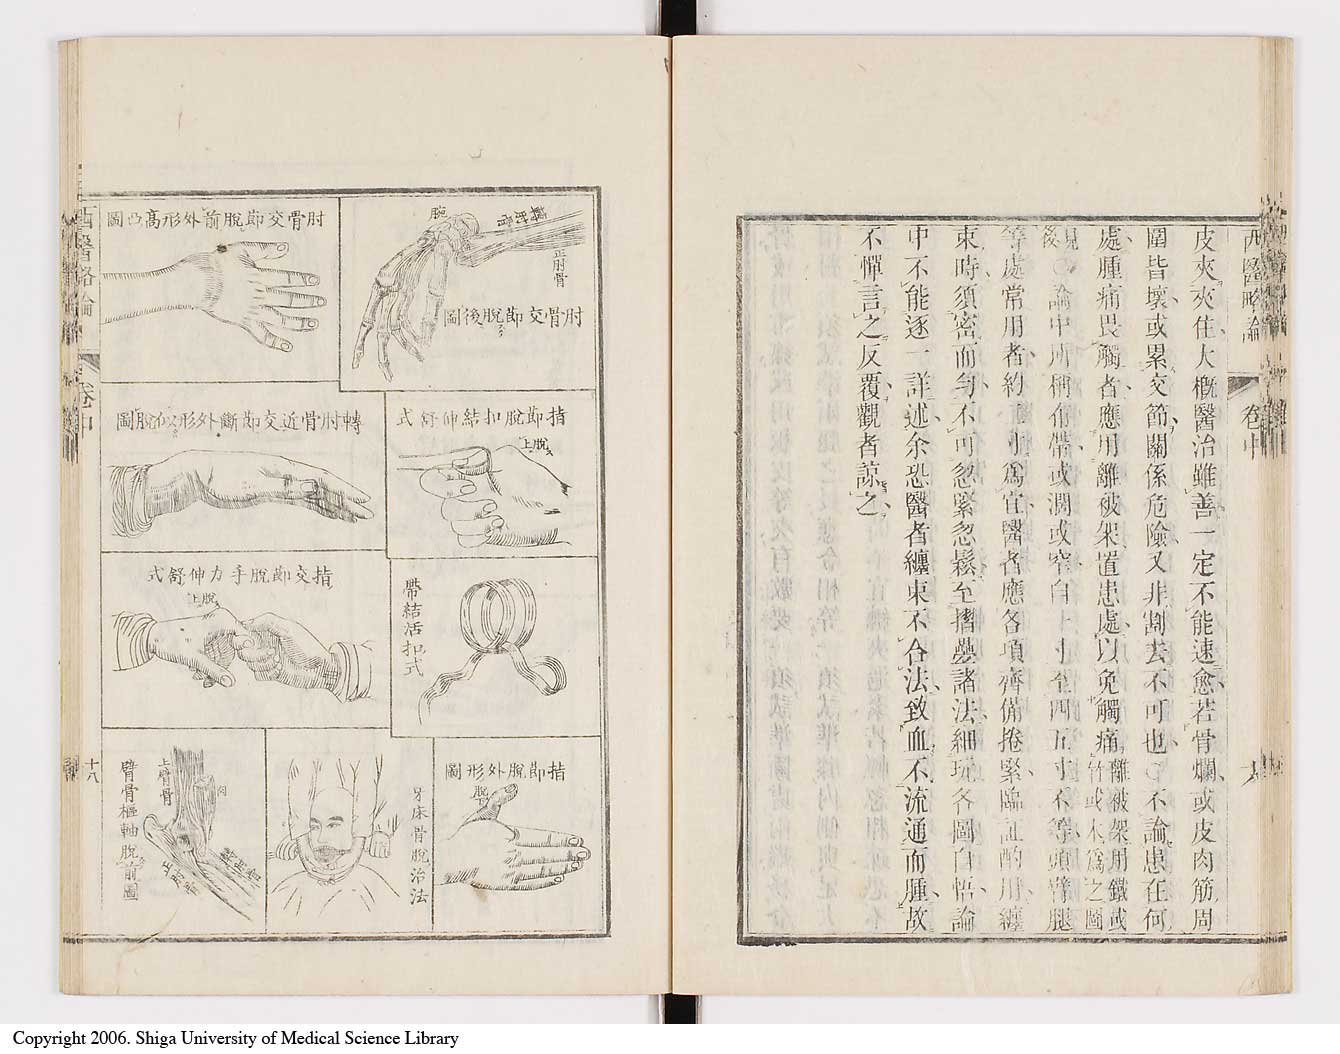 西醫略論
卷中
皮夾夾住大概醫治雖善一定不能速愈若骨爛或皮肉筋周
圍皆壞或累交節關係危險又非割去不可也○不論患在何
處腫痛畏觸者應用離被架置患處以免觸痛離被架用鐵或竹或木爲之圖
後○論中所稱布帶或濶或窄自
等處常用者約
寸爲宜醫者應各項齊備捲緊臨証酌用纏
束時須密而勻不可忽緊忽鬆至摺疊諸法細玩各圖自悟論
中不能逐一詳述余恐醫者纏束不合法致血不流通而腫故
不憚言之反覆觀者諒之
西醫略論
卷中
十八
腕
正肘骨
肘骨交節脫後圖
肘骨交節脫前外形高凸圖
指節脫扣結伸舒式
上脫
轉肘骨近交節斷外形似脫圖
帶結活扣式
指交節脫手力伸舒式
上脫
指節脫外形圖
脫
牙床骨脫治法
上臂骨
正肘骨
臂骨樞軸脫前圖
Copyright 2006. Shiga University of Medical Science Library